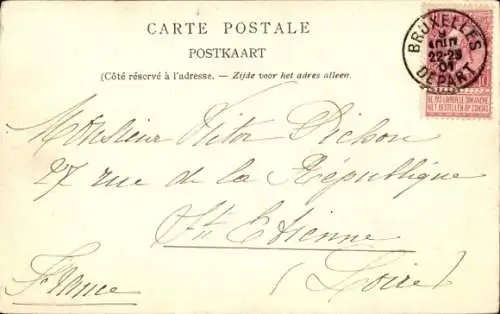 CARTE POSTALE
POSTKAART
(Côté réservé à l'adresse. — Zijde voor het adres alleen.
BRUXELLES
9
AOUT
22-23
01
DEPART
NE PAS LIVRER LE DIMANCHE
NIET BESTELLEN OP ZONDAG
Monsieur Vitor Pichon
27 rue de la République
St Etienne
(Loire)
France